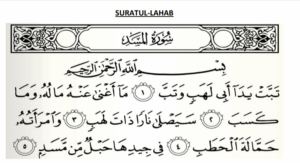 SURATUL-LAHAB
سُورَةُ المَسَد
بِسْمِ اللَّهِ الرَّحْمَٰنِ الرَّحِيمِ
تَبَّتْ يَدَا أَبِي لَهَبٍ وَتَبَّ ١ مَا أَغْنَىٰ عَنْهُ مَالُهُ وَمَا
كَسَبَ ٢ سَيَصْلَىٰ نَارًا ذَاتَ لَهَبٍ ٣ وَامْرَأَتُهُ
حَمَّالَةَ الْحَطَبِ ٤ فِي جِيدِهَا حَبْلٌ مِّن مَّسَدٍ ٥